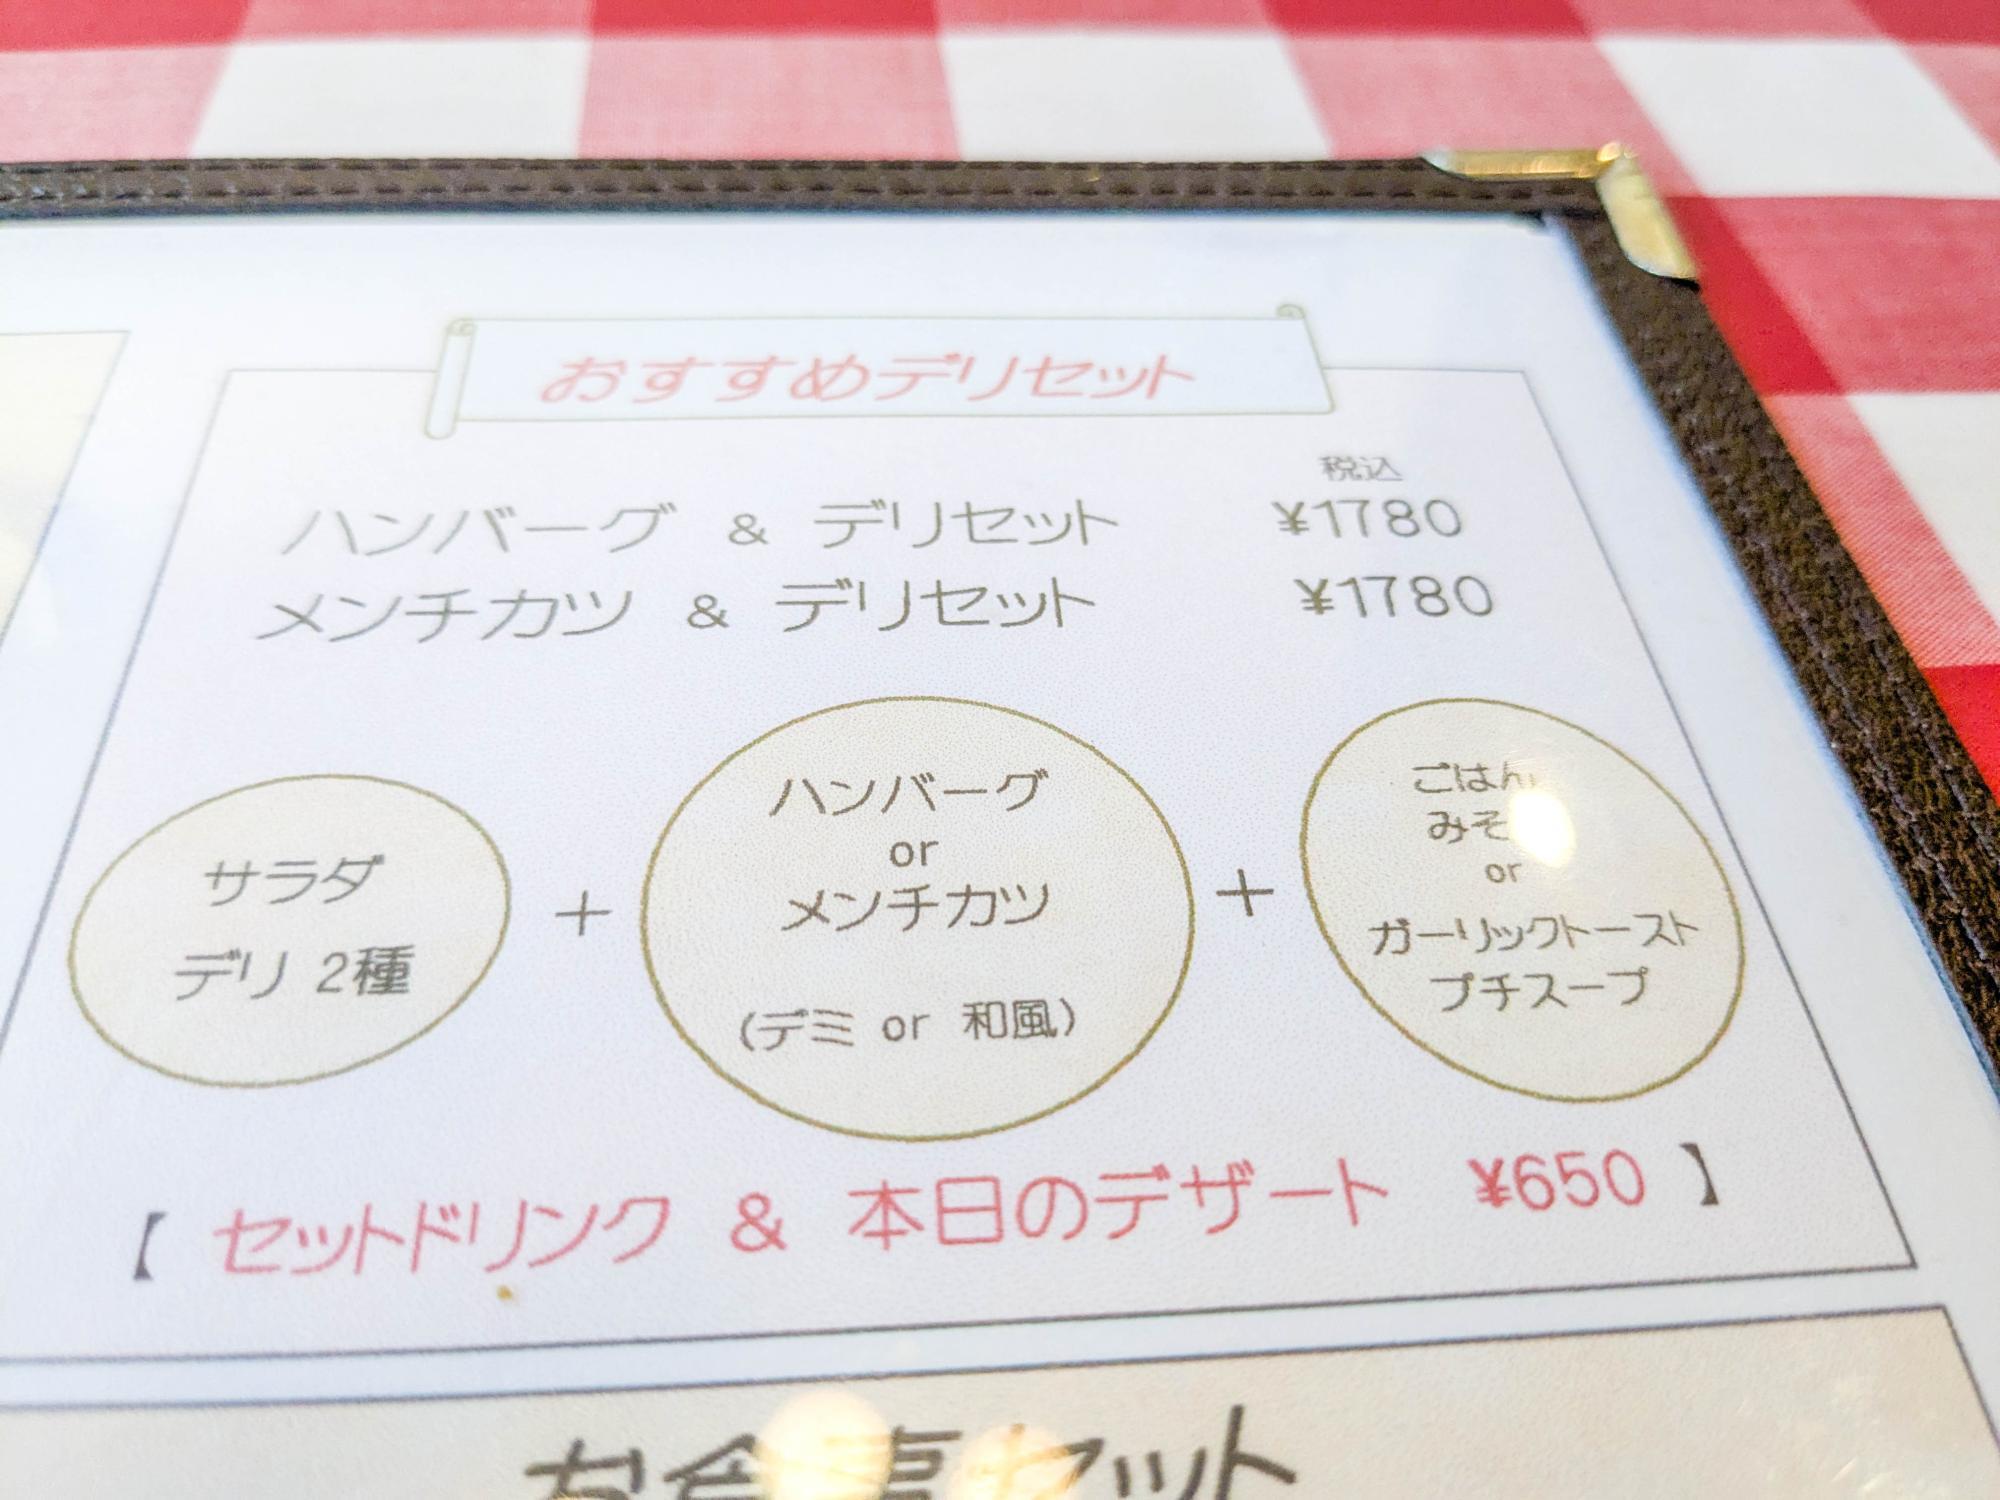 おすすめデリセット
税込
ハンバーグ & デリセット ¥1780
メンチカツ & デリセット ¥1780
サラダ
デリ 2種
+
ハンバーグ
or
メンチカツ
(デミ or 和風)
+
ごはん
みそ
or
ガーリックトースト
プチスープ
【 セットドリンク & 本日のデザート ¥650 】
お食事セット